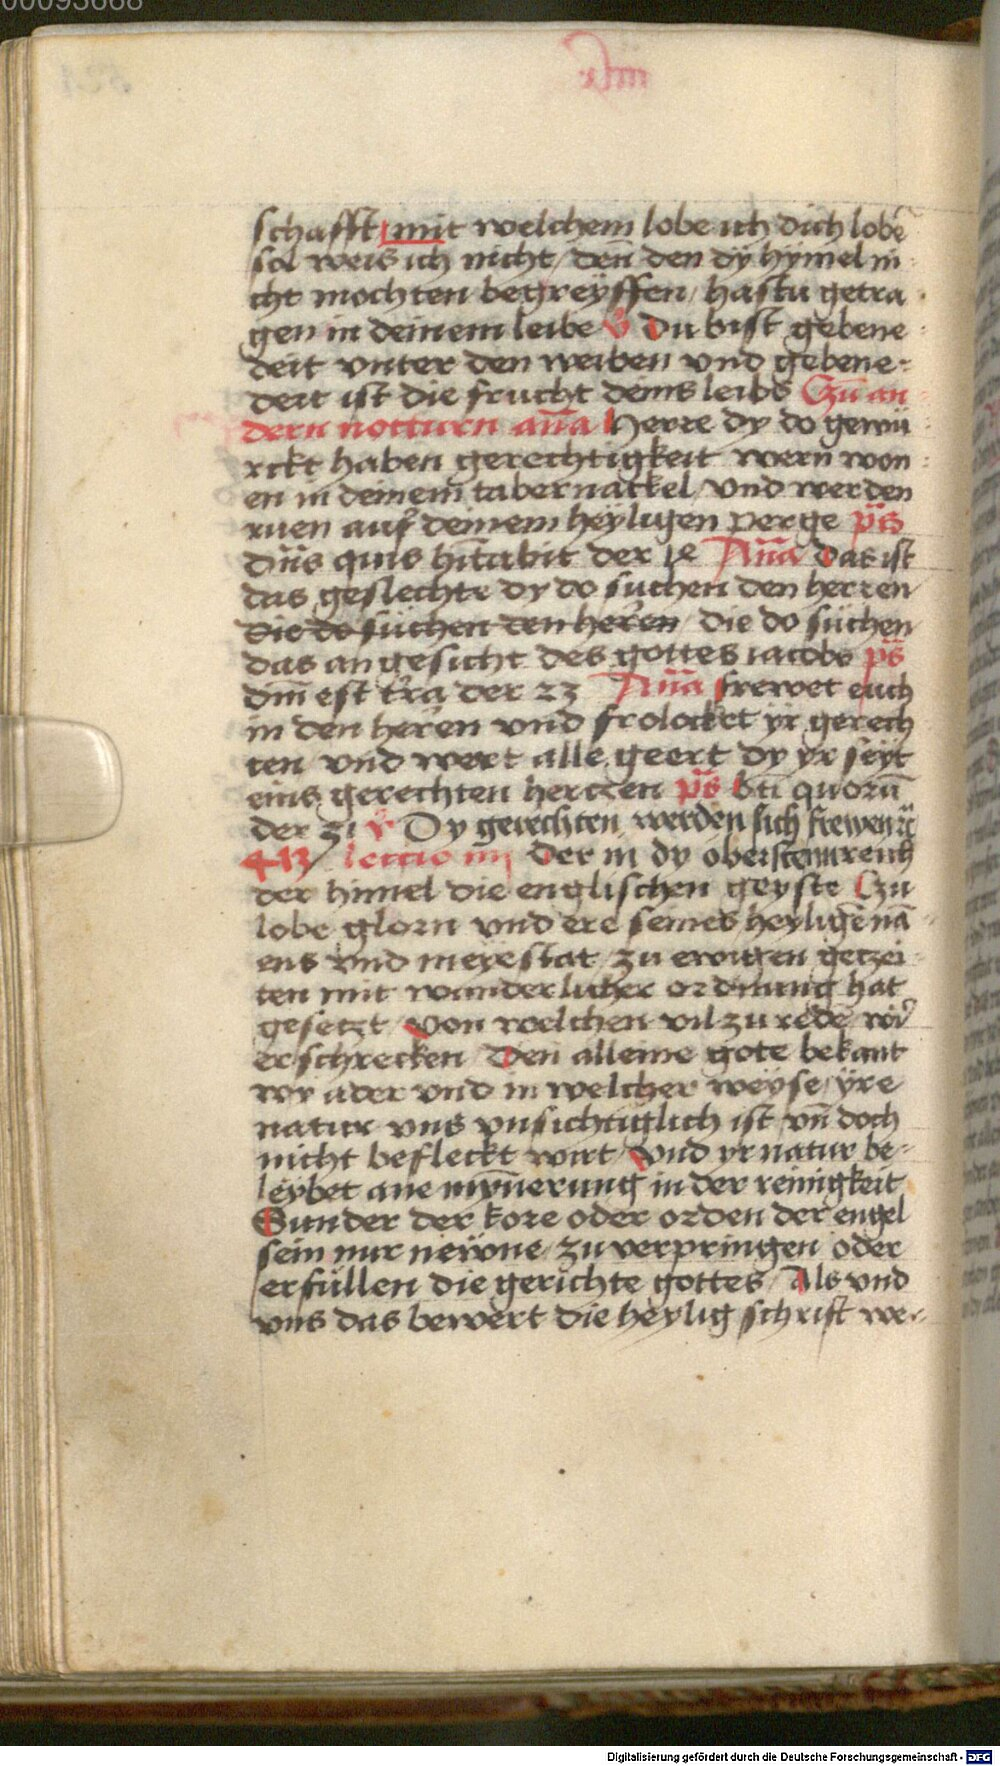 00093668
schafft mit welchem lobe ich dich lobē
sol weis ich nicht / den̄ den dÿ hÿmel ni
cht mochten begreÿffen / hastu getra
gen in deinem leibe V̄ Du bist gebene
deit vnter den weiben vnd gebene-
deit ist die frucht deins leibs Czū an
dern notturn an̄a Herre dy do gewü
rckt haben gerechtigkeit wern won
en in deinem tabernackel / vnd werden
ruen auf deinem heyligen perge ps̄
Dn̄s quis hītabit der 14 An̄a Das ist
das geslechte dy do suchen den herren
die do süchen den heren / die do süchen
das angesicht des gottes iacobs ps̄
dn̄i est t̄ra der 23 An̄a frewet euch
in den heren vnd frolocket ÿr gerech
ten vnd wert alle geert dy yr seÿt
eins gerechten hertzen ps̄ bt̄i quorū
der 31 V̄ Dy gerechten werden sich frewen ꝛc
lectio iiij Der in dy obersten reich
der himel die englischen geyste Czu
lobe glorn vnd ere seines heyligē nā
ens vnd meyestat / zu ewigen getzei
ten mit wunderlicher ordnung hat
gesetzt / Von welchen vil zu redē wir
erschrecken / Den alleine gote bekant
wy ader vnd in welcher weÿse ÿre
natur vns vnsichtiglich ist vn̄ doch
nicht befleckt wirt / Vnd yr natur be-
leÿbet ane mÿn̄erung in der reinigkeit
Sunder der kore oder orden der engel
sein nur newne / zu verpringen oder
erfüllen die gerichte gottes / Als vnd
vns das bewert die heylig schrift we-
Digitalisierung gefördert durch die Deutsche Forschungsgemeinschaft - DFG